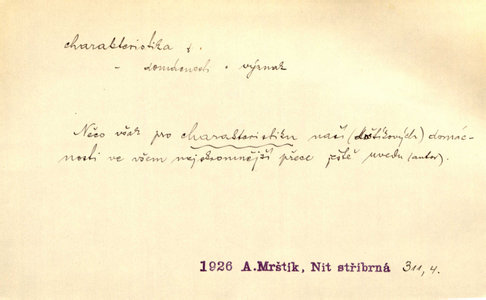 charakteristika f.
– domácnosti • význak
Něco však pro charakteristiku naší (doštikových) domác-
nosti ve všem nejskromnější přece ještě uvedu (autor).
1926 A.Mrštík, Nit stříbrná 311, 4.